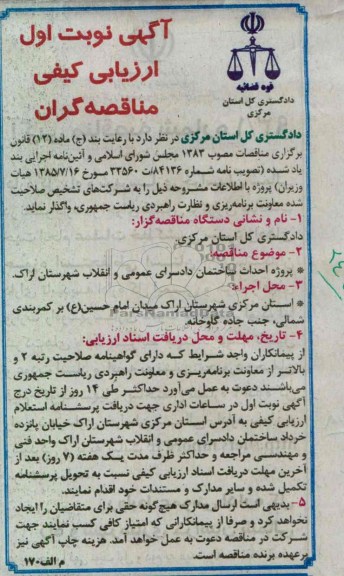 آگهی نوبت اول
ارزیابی کیفی
مناقصه‌گران
قوه قضائیه
دادگستری کل استان
مرکزی
دادگستری کل استان مرکزی در نظر دارد با رعایت بند (ج) ماده (۱۲) قانون
برگزاری مناقصات مصوب ۱۳۸۳ مجلس شورای اسلامی و آئین‌نامه اجرایی بند
یاد شده (تصویب نامه شماره ۸۴۱۳۶/ت ۳۳۵۶۰ مورخ ۱۳۸۵/۷/۱۶ هیات
وزیران) پروژه با اطلاعات مشروحه ذیل را به شرکت‌های تشخیص صلاحیت
شده معاونت برنامه‌ریزی و نظارت راهبردی ریاست جمهوری، واگذار نماید.
۱- نام و نشانی دستگاه مناقصه‌گزار:
دادگستری کل استان مرکزی.
۲- موضوع مناقصه:
* پروژه احداث ساختمان دادسرای عمومی و انقلاب شهرستان اراک.
۳- محل اجراء:
* استان مرکزی شهرستان اراک میدان امام حسین(ع) بر کمربندی
شمالی، جنب جاده گاوخانه.
۴- تاریخ، مهلت و محل دریافت اسناد ارزیابی:
از پیمانکاران واجد شرایط که دارای گواهینامه صلاحیت رتبه ۲ و
بالاتر از معاونت برنامه‌ریزی و معاونت راهبردی ریاست جمهوری
می‌باشند دعوت به عمل می‌آورد حداکثر طی ۱۴ روز از تاریخ درج
آگهی نوبت اول در ساعات اداری جهت دریافت پرسشنامه استعلام
ارزیابی کیفی به آدرس استان مرکزی شهرستان اراک خیابان پانزده
خرداد ساختمان دادسرای عمومی و انقلاب شهرستان اراک واحد فنی
و مهندسی مراجعه و حداکثر ظرف مدت یک هفته (۷ روز) بعد از
آخرین مهلت دریافت اسناد ارزیابی کیفی نسبت به تحویل پرسشنامه
تکمیل شده و سایر مدارک و مستندات خود اقدام نمایند.
۵- بدیهی است ارسال مدارک هیچ‌گونه حقی برای متقاضیان را ایجاد
نخواهد کرد و صرفا از پیمانکارانی که امتیاز کافی کسب نمایند جهت
شرکت در مناقصه دعوت به عمل خواهد آمد. هزینه چاپ آگهی نیز
برعهده برنده مناقصه است.
م الف۱۷۰